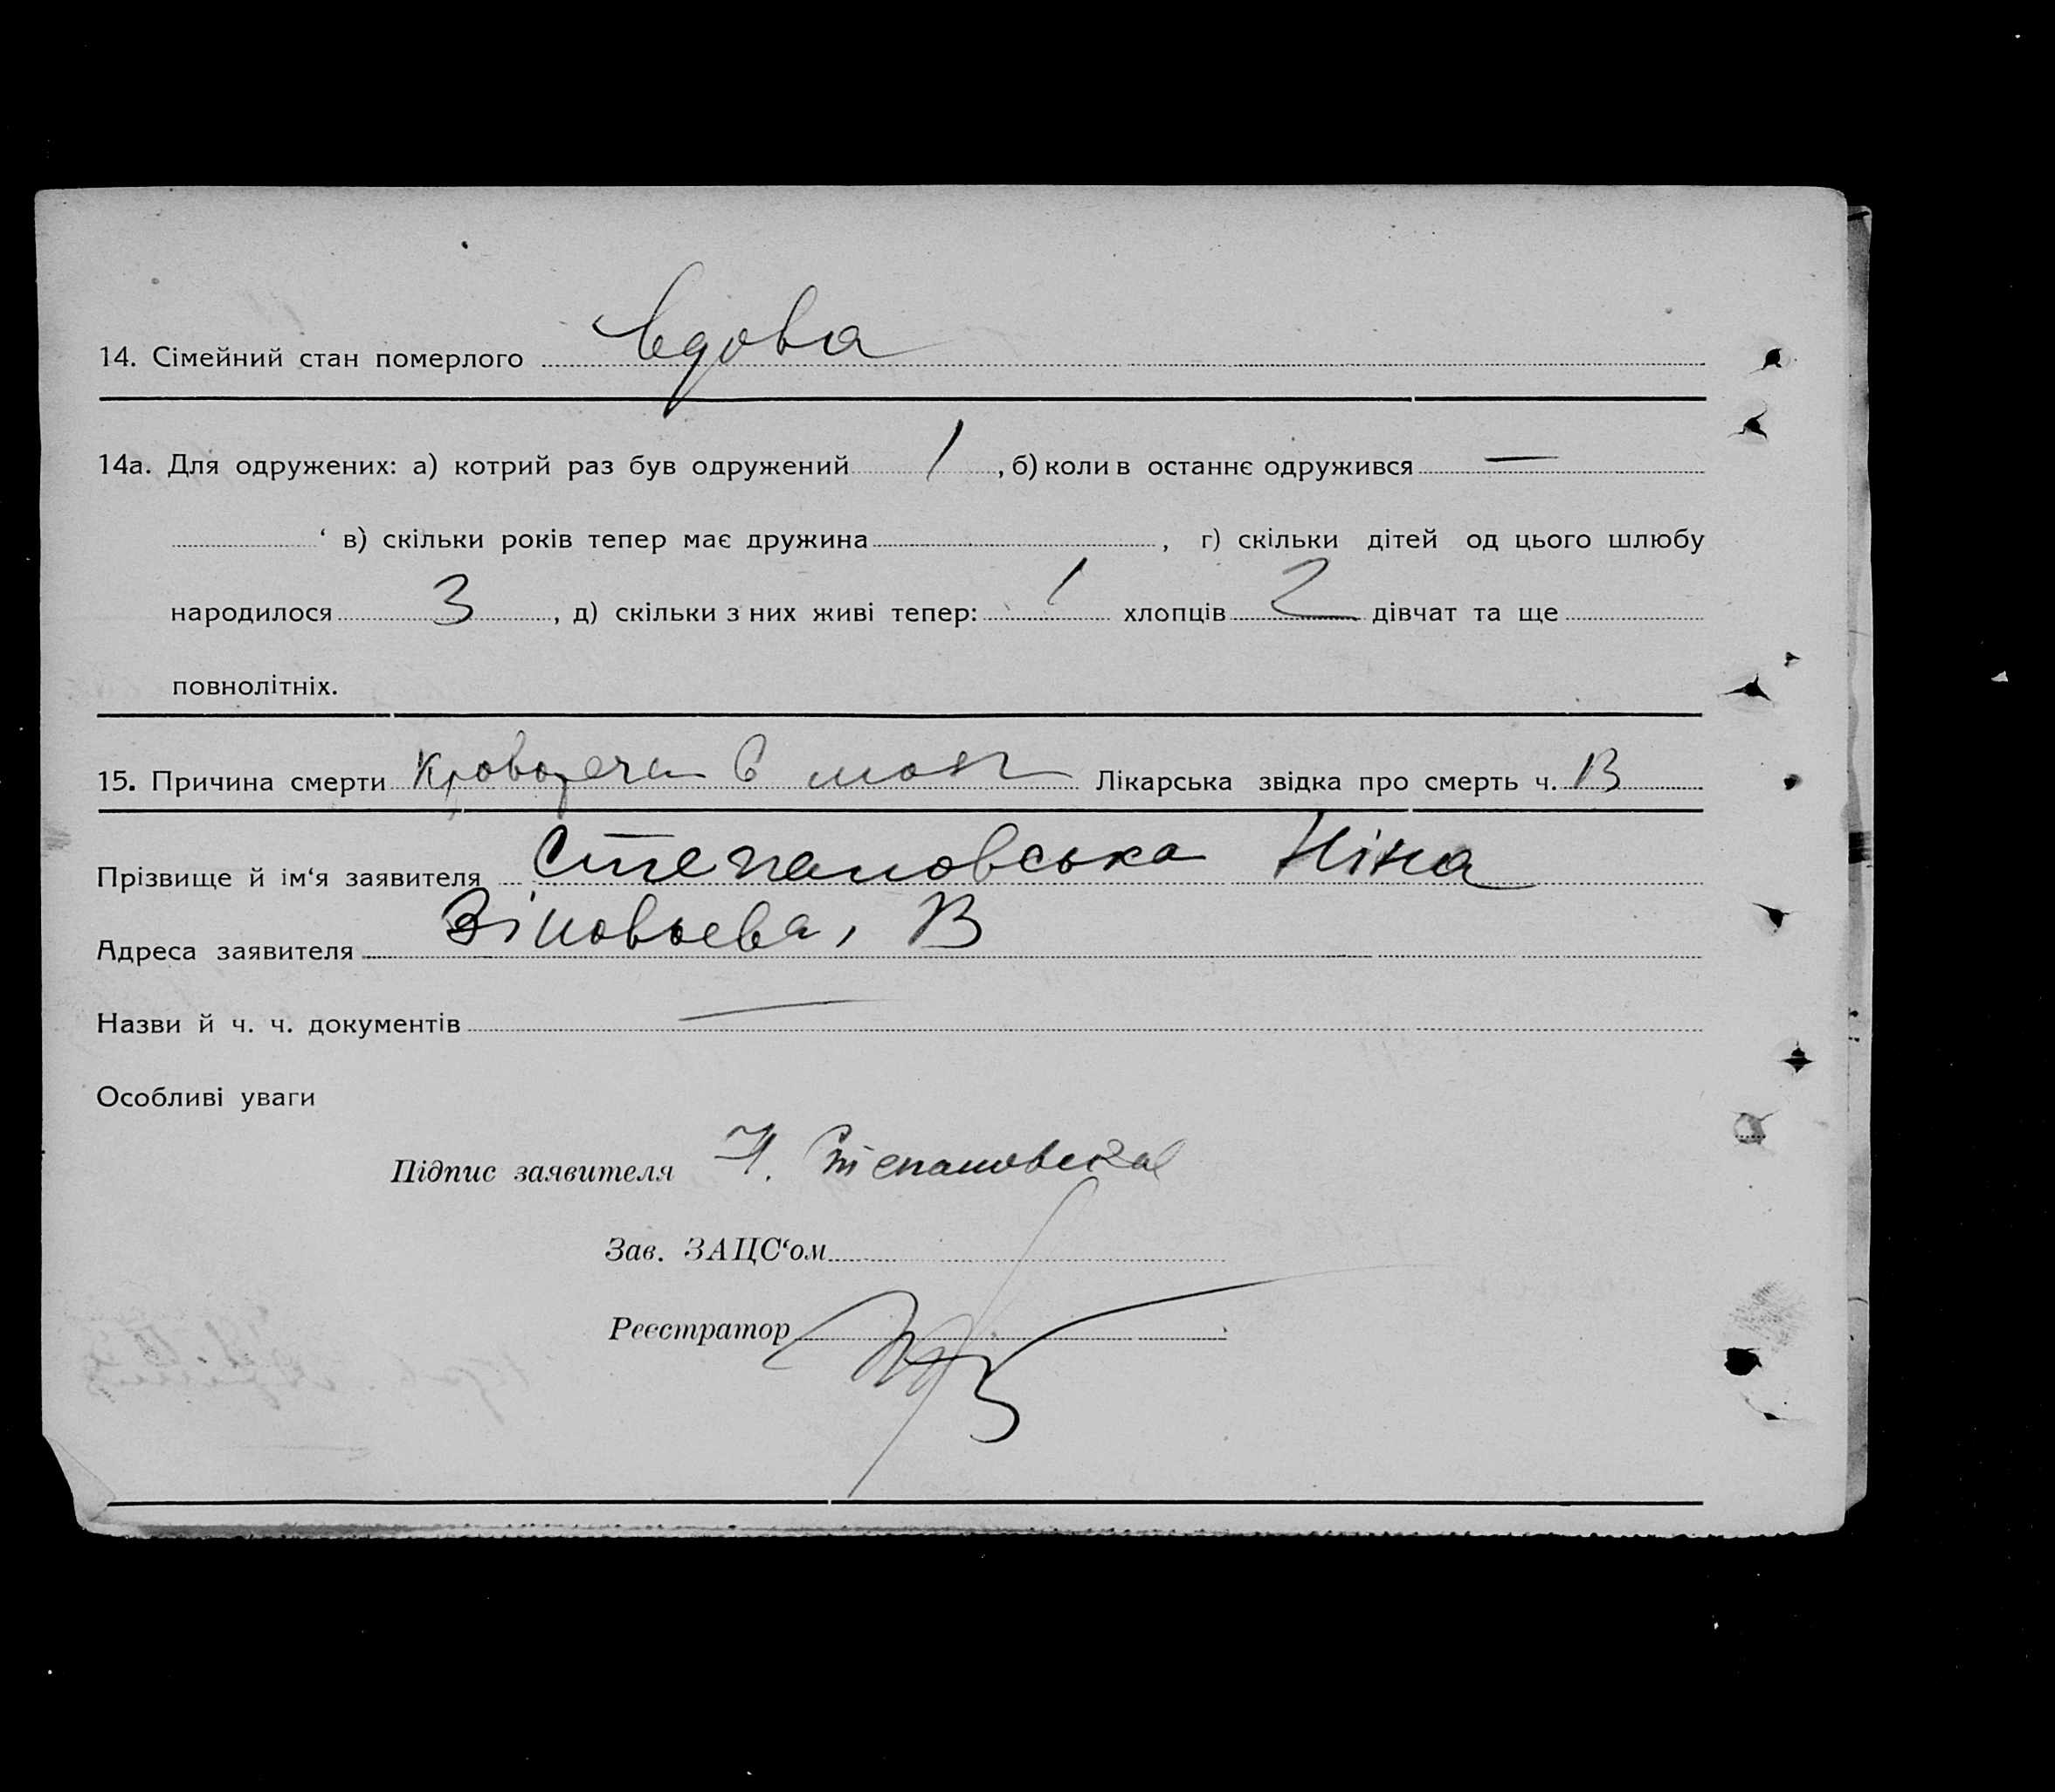 14. Сімейний стан померлого вдова
14а. Для одружених: а) котрий раз був одружений 1, б) коли в останнє одружився —
‘ в) скільки років тепер має дружина, г) скільки дітей од цього шлюбу
народилося 3, д) скільки з них живі тепер: 1 хлопців 2 дівчат та ще
повнолітніх.
15. Причина смерти Кровотеча в мозг Лікарська звідка про смерть ч. 13
Прізвище й ім‘я заявителя Степановська Ніна
Адреса заявителя Зіновьева, 13
Назви й ч. ч. документів —
Особливі уваги
Підпис заявителя Н. Степановская
Зав. ЗАЦС‘ом
Реєстратор